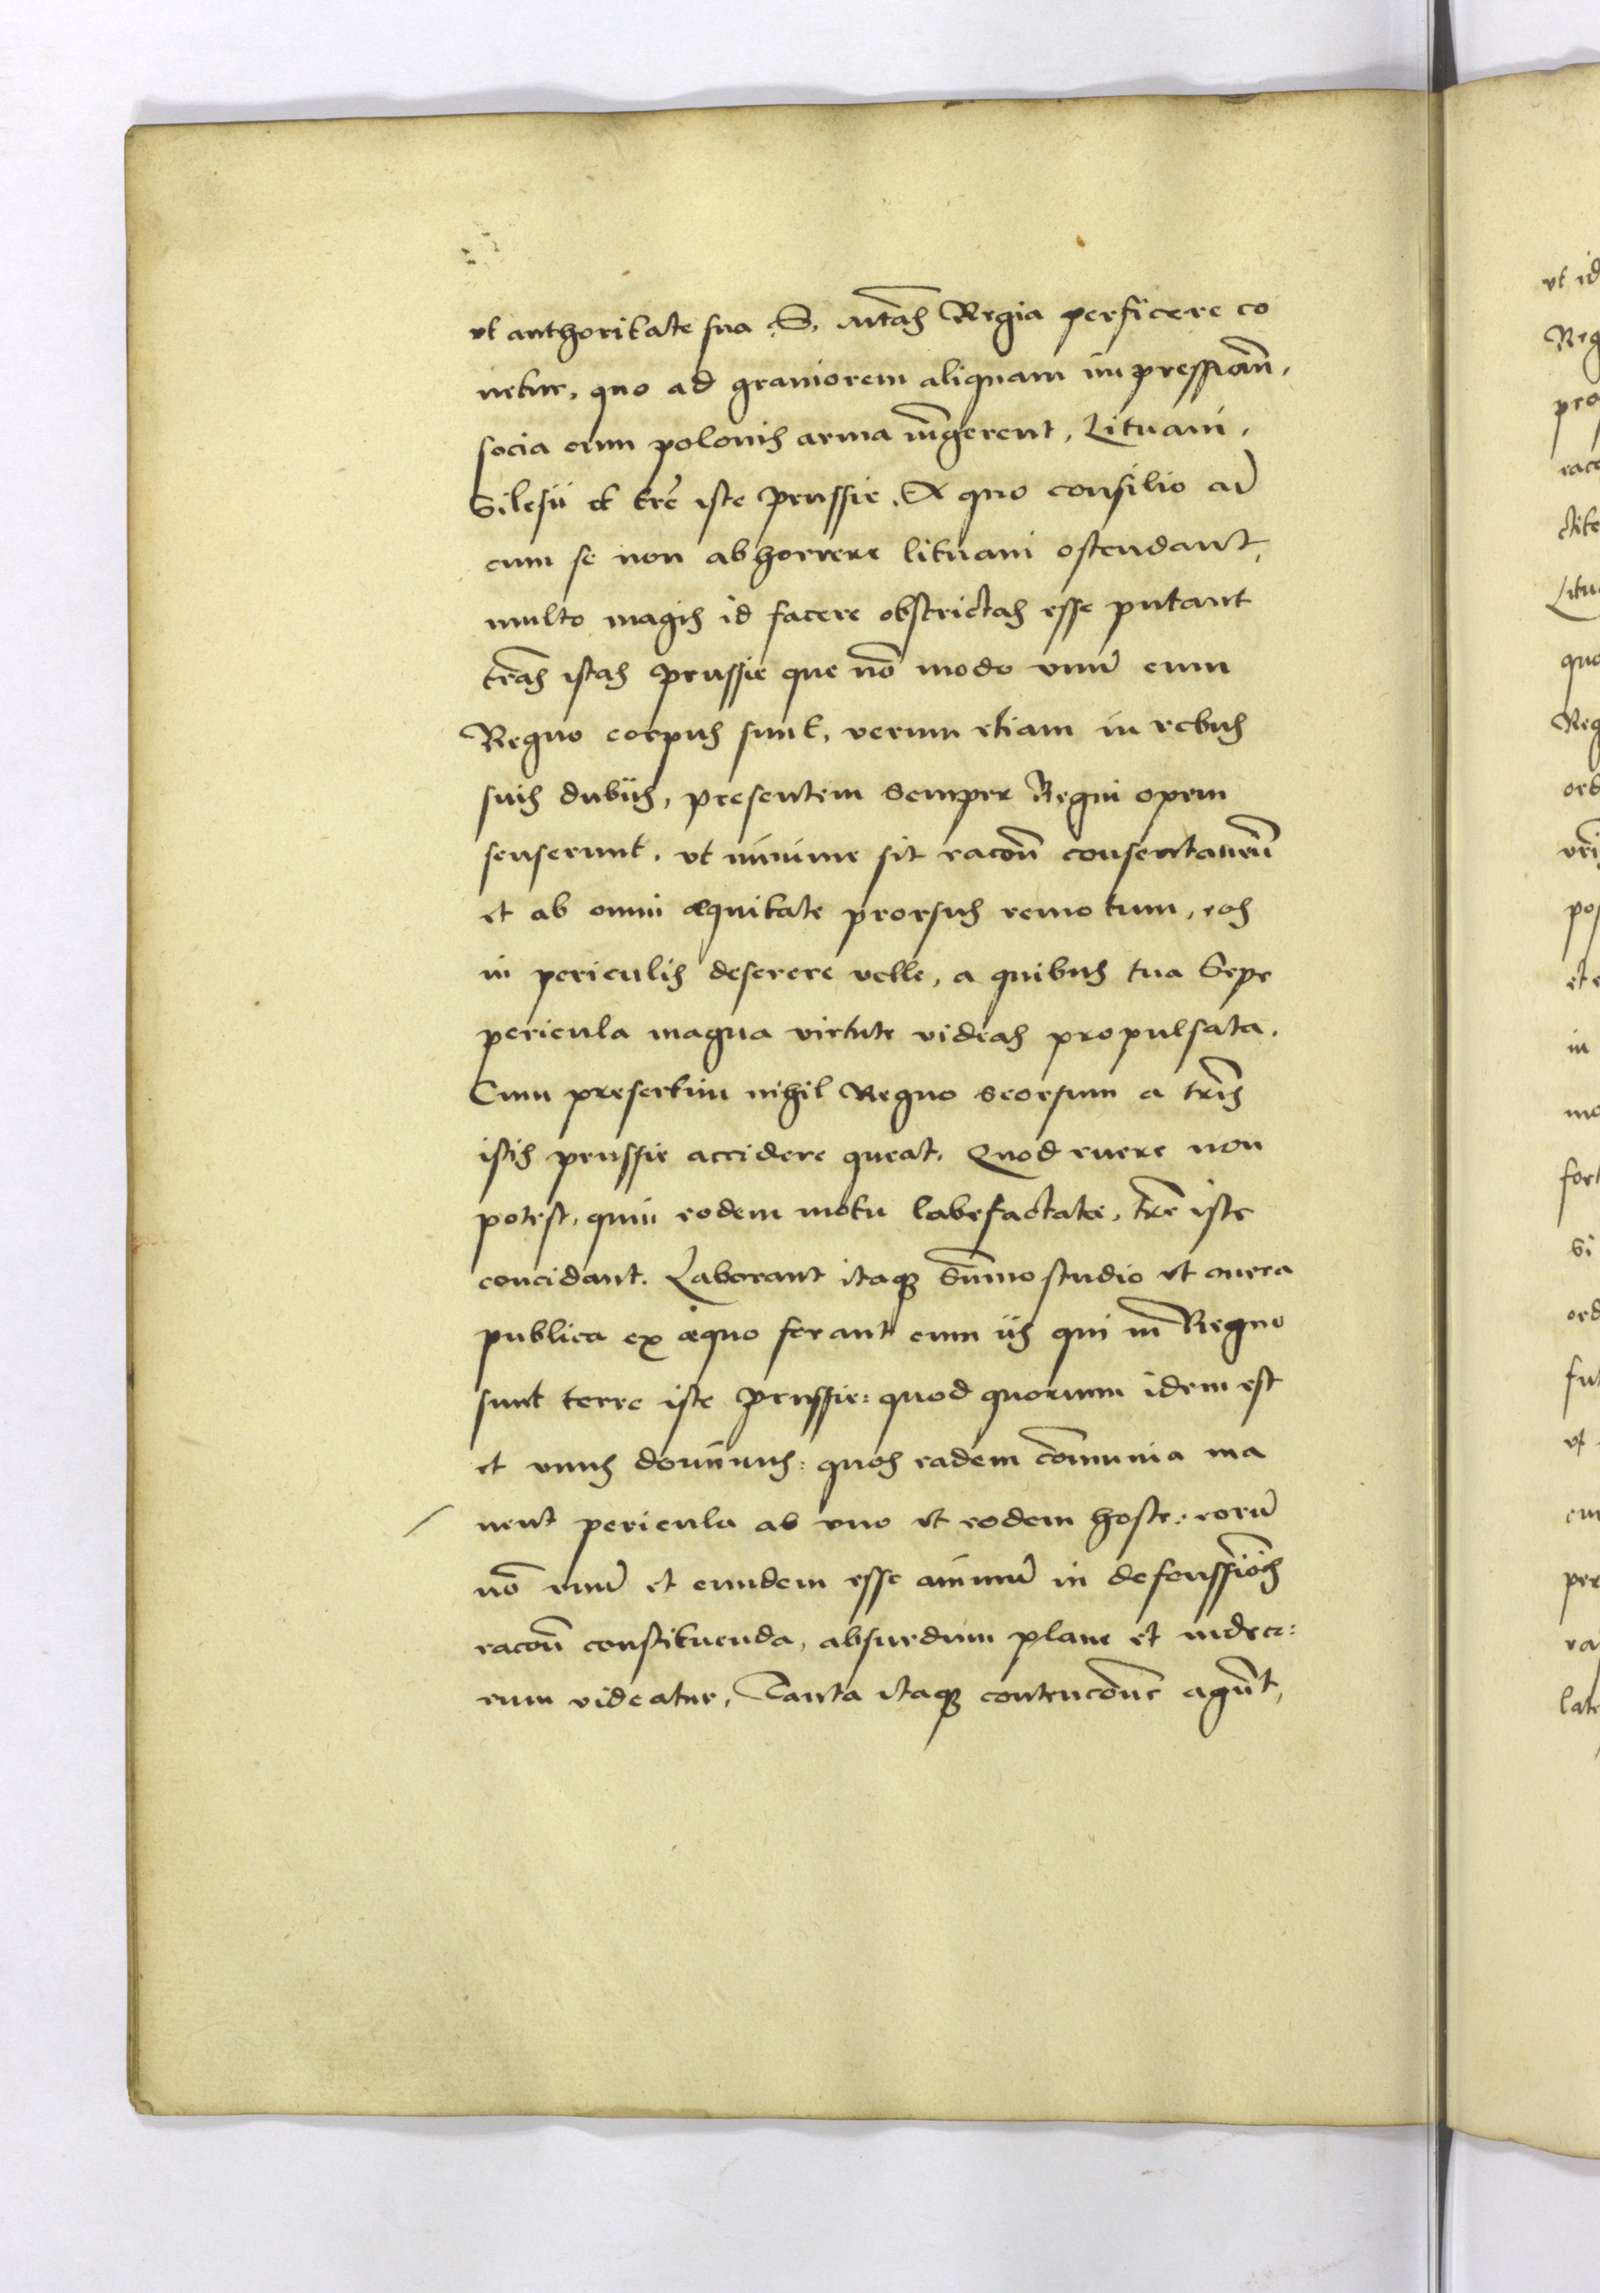 vt authoritate sua .S. M̃tas Regia perficere co
netur, quo ad grauiorem aliquam impressionẽ,
socia cum polonis arma iũgerent, Lituani,
Silesii et trẽ iste Prussie. A quo consilio ad
cum se non abhorrere lituani ostendant,
multo magis id facere obstrictas esse putant
trãs istas Prussie que nõ modo vnũ cum
Regno corpus sunt, verum etiam in rebus
suis dubiis, presentem semper Regni opem
senserunt, vt minime sit racoñ consentaneũ
et ab omni æquitate prorsus remotum, eos
in periculis deserere velle, a quibus tua Sepe
pericula magna virtute videas propulsata.
Cum presertim nihil Regno seorsum a tr̃is
istis prussie accidere queat. Quod ruere non
potest, quin eodem motu labefactatæ, tr̃e iste
concidant. Laborant itaq; Sũmo studio vt onera
publica ex æquo ferant cum iis qui in Regno
sunt terre iste Prussie: quod quorum idem est
et vnus dominus: quos eadem cõmunia ma
nent pericula ab vno et eodem hoste: eorũ
nõ vnũ et eundem esse animũ in defenssiõis
racoñ constituenda, absurdum plane et indeco:
rum videatur, Tanta itaq; contencõne agũt,
vt id
Reg
pro
raco
Litu
quo
Reg
ord
pos
et e
in
mo
fort
Si
ord
fut
vt
cum
per
ra
late